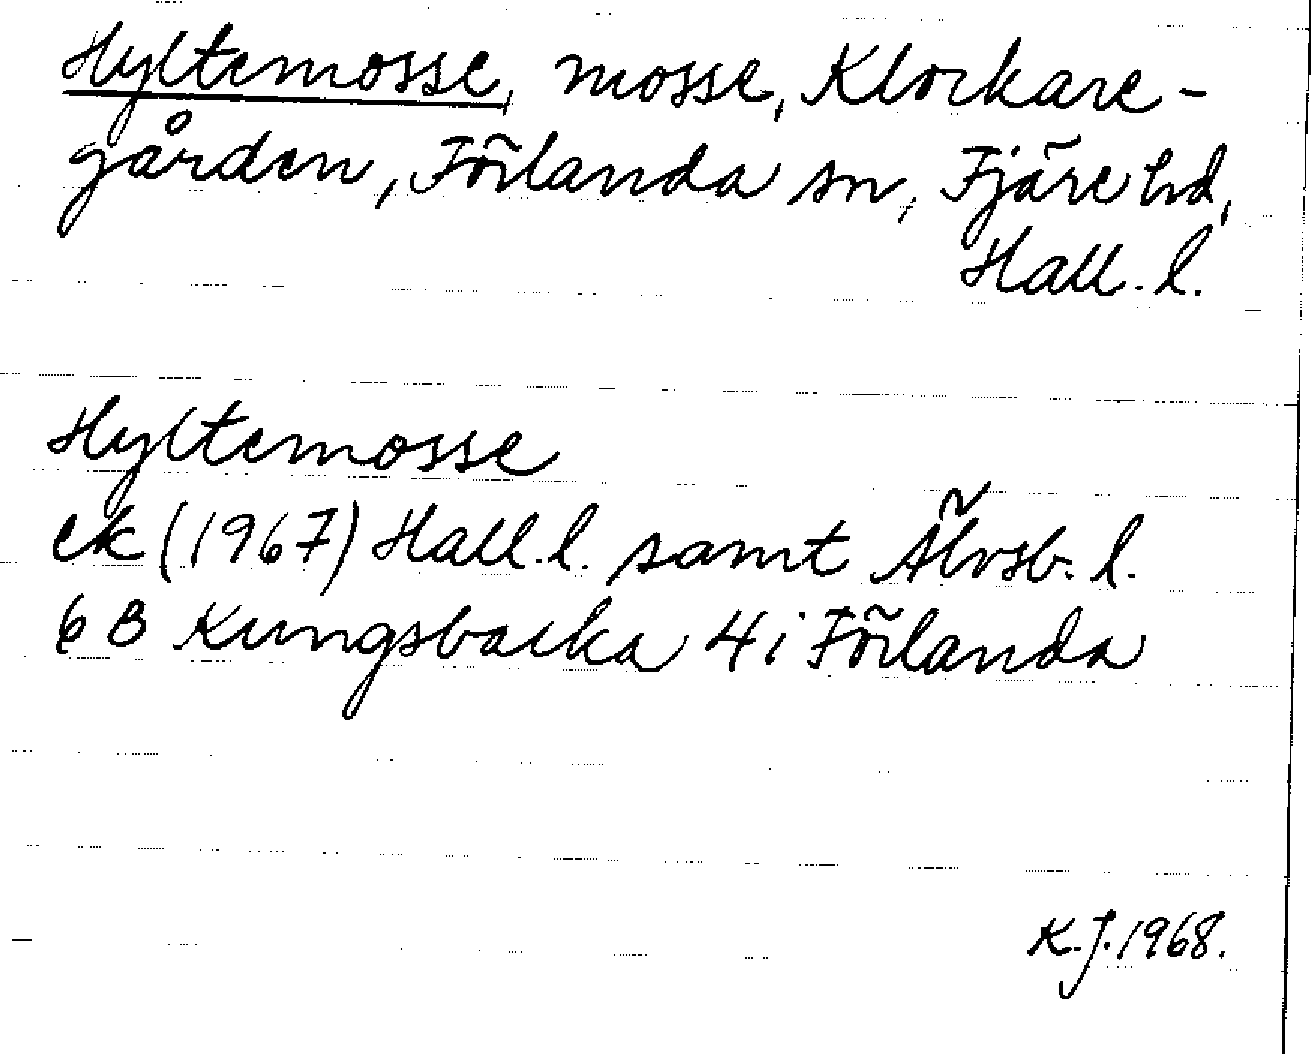 Hyltemosse, mosse, Klockare-
gården, Förlanda sn, Fjäre hd,
Hall. l.
Hyltemosse
ek (1967) Hall. l. samt Älvsb. l.
6 B Kungsbacka 4 i Förlanda
K. J. 1968.